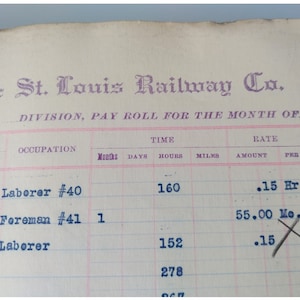 St. Louis Railway Co.
DIVISION, PAY ROLL FOR THE MONTH OF
OCCUPATION TIME RATE
Months DAYS HOURS MILES AMOUNT PER
Laborer #40 160 .15 Hr
Foreman #41 1 55.00 Mo.
Laborer 152 .15
278
267